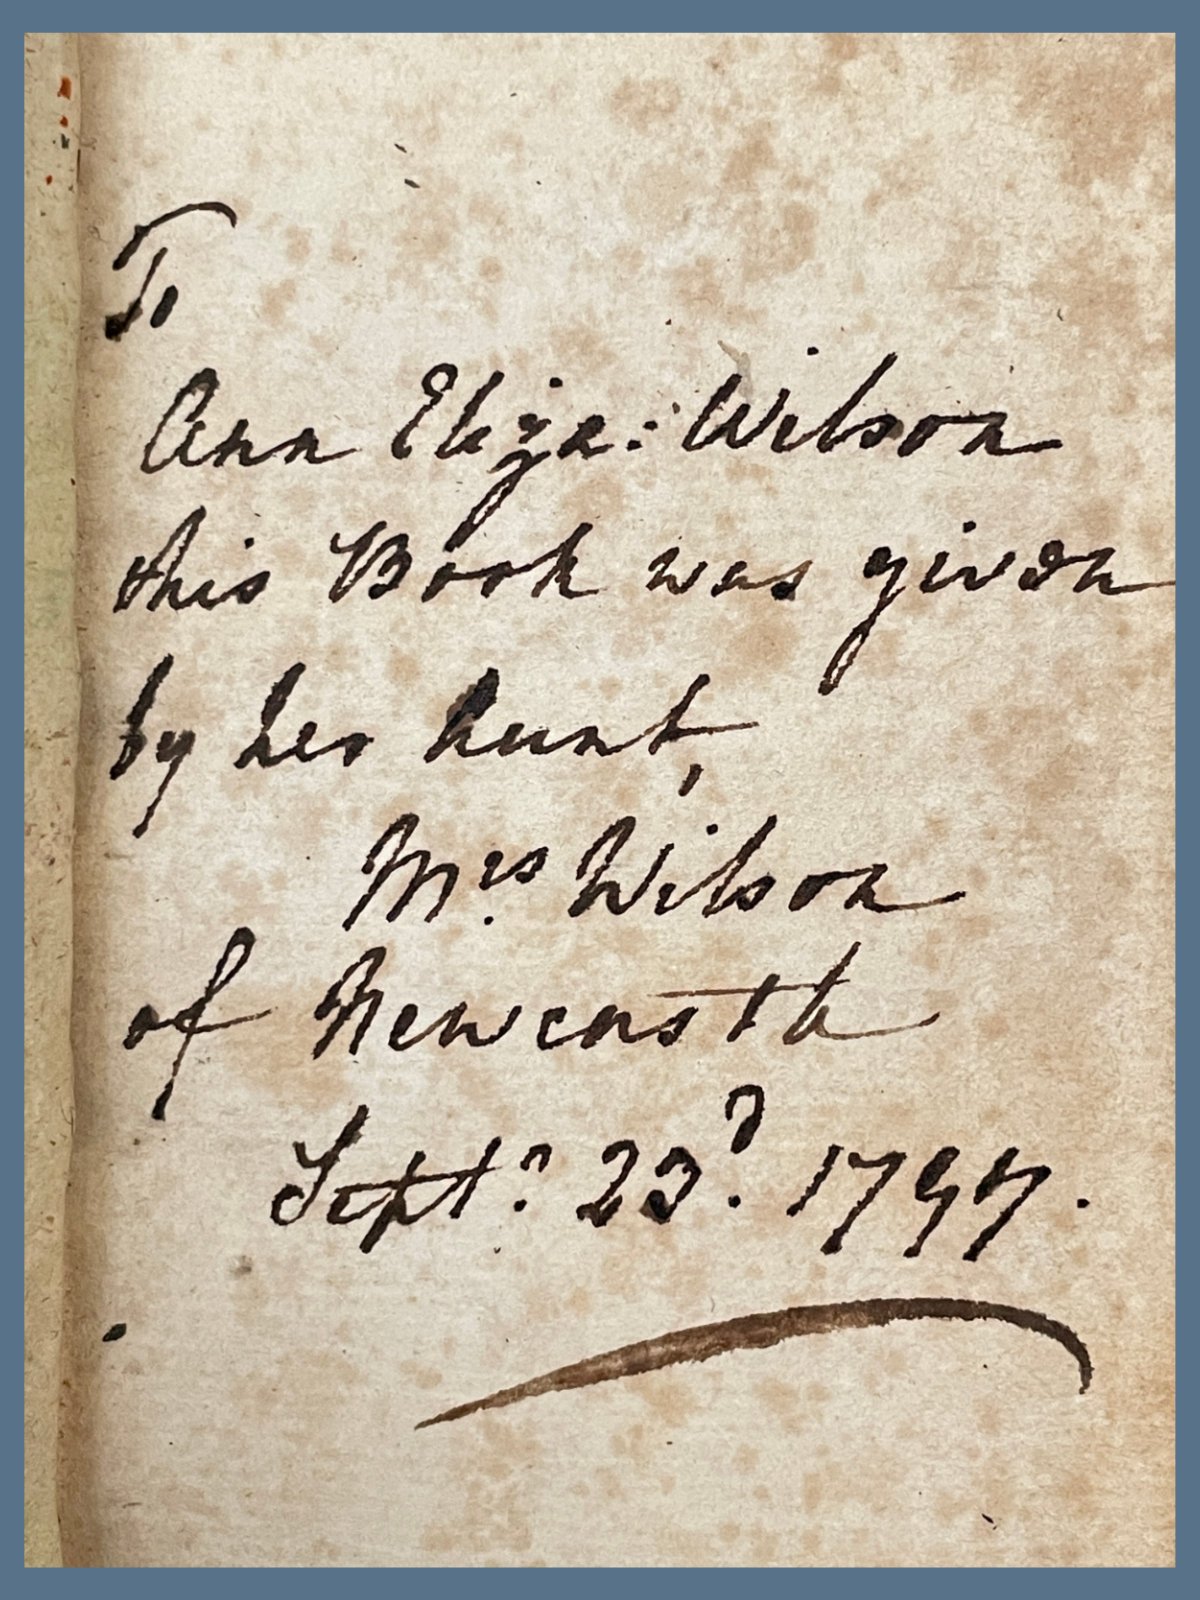 To
Ann Eliza: Wilson
this Book was given
by her Aunt,
Mrs. Wilson
of Newcastle
Septr. 23d. 1797.